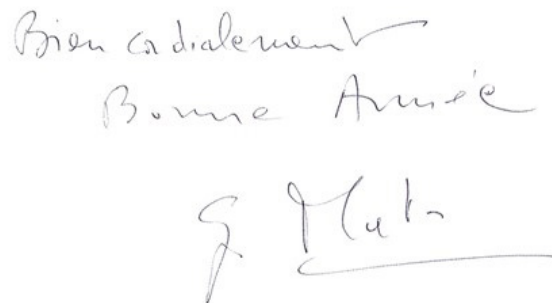 Bien cordialement
Bonne Année
G